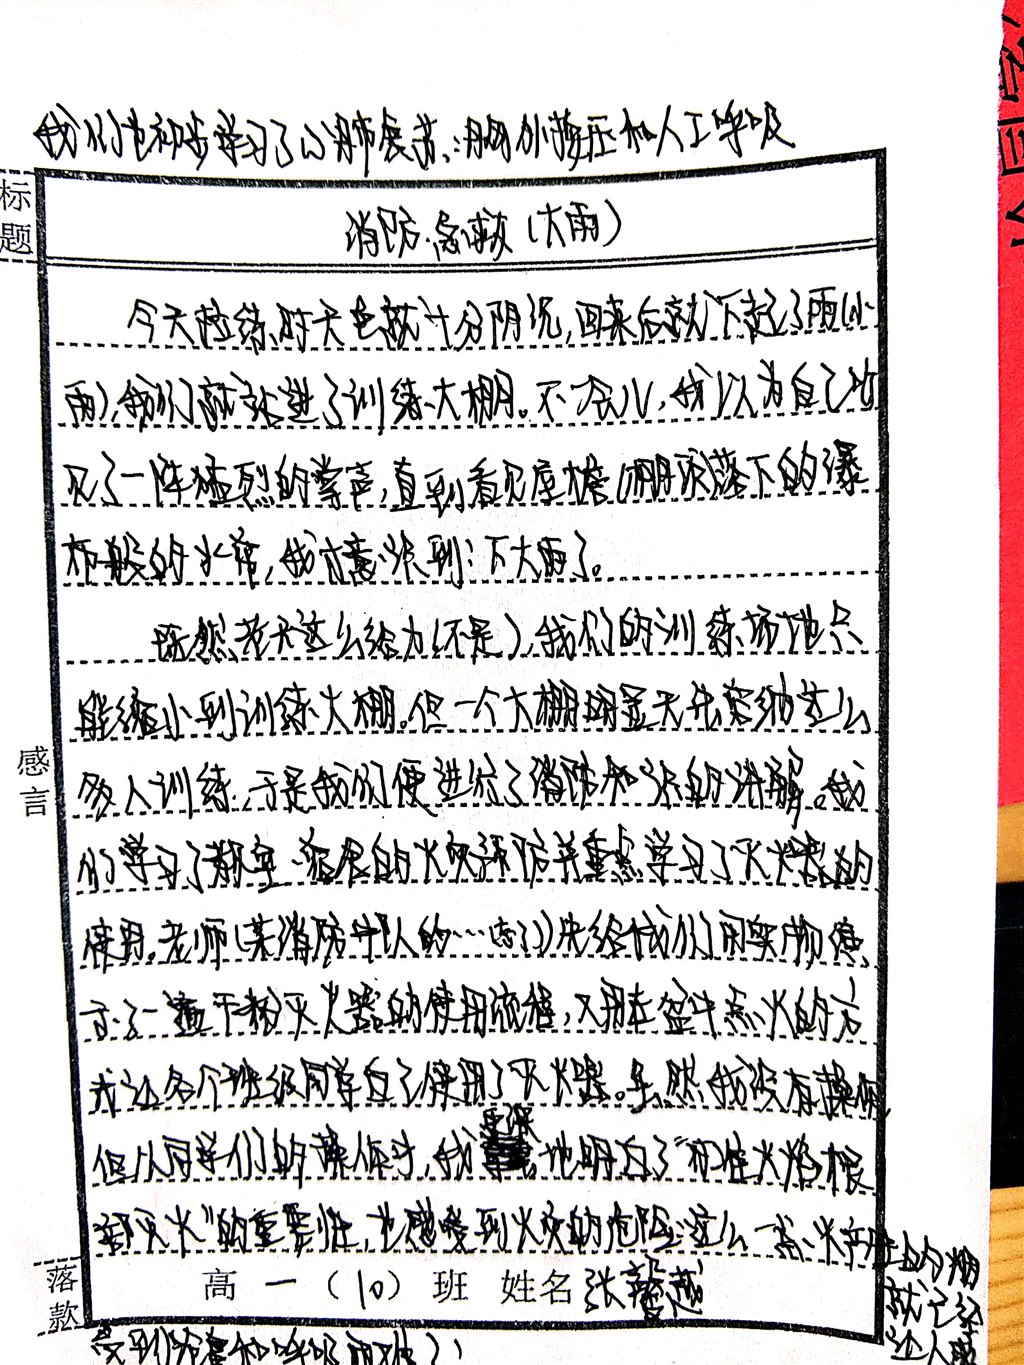 我们也初步学习了心肺复苏:胸外按压和人工呼吸
标题
消防·急救(大雨)
今天拉练时天色就十分阴沉,回来后就下起了雨(小
雨),我们就站进了训练大棚。不一会儿,我以为自己听
见了一阵猛烈的掌声,直到看见屋檐(棚顶)落下的瀑
布般的水帘,我才意识到:下大雨了。
既然老天这么给力(不是),我们的训练场地只
能缩小到训练大棚。但一个大棚明显无法容纳这么
多人训练,于是我们便进行了消防知识的讲解。我
们学习了教室、宿舍的火灾预防并重点学习了灭火器的
使用。老师(某消防部队的…忘了)先给我们用实物演
示了一遍干粉灭火器的使用流程,又用在盆中点火的方
式让各个班级同学自己使用了灭火器。虽然我没有操作,
但从同学们的操作中,我更深地明白了“对准火焰根
部灭火”的重要性,也感受到火灾的危险:这么一点火产生的烟
就已经
让人感
受到
高一(10)班 姓名 张馨越
感言
落款